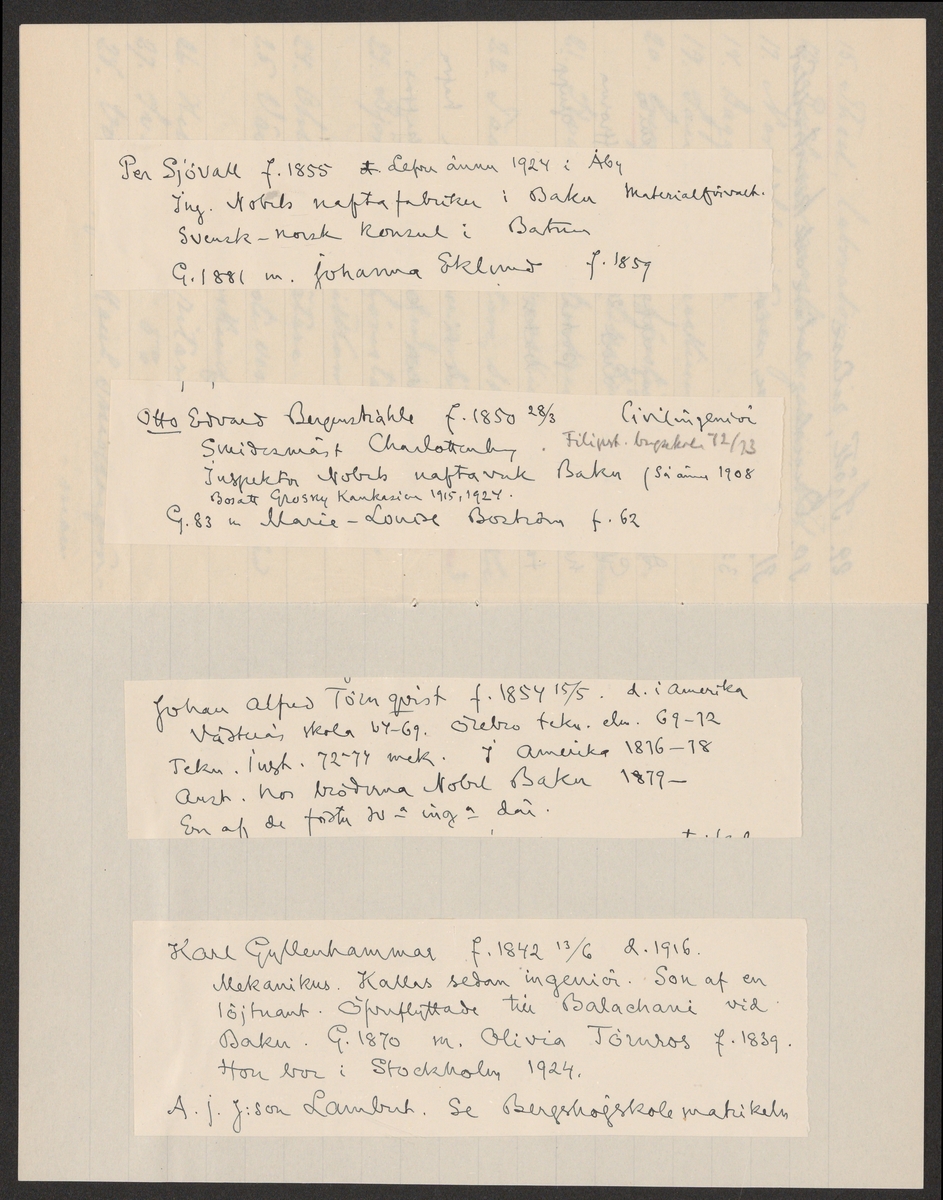 Per Sjövall f. 1855 Lefer ännu 1924 i Åby
Ing. Nobels naftafabriker i Baku Materialförvalt.
Svensk-norsk konsul i Batum
G. 1881 m. Johanna Eklund f. 1859
Otto Edvard Bergenstråhle f. 1850 28/3 Civilingeniör
Smidesmäst Charlottenberg. Filipst. bergskola 72/73
Inspektor Nobels naftaverk Baku (Så ännu 1908
Bosatt Grosny Kaukasien 1915, 1924.
G. 83 m Marie-Louise Boström f. 62
Johan Alfred Törnqvist f. 1854 15/5. d. i Amerika
Västerås skola 64-69. Örebro tekn. elem. 69-72
Tekn. Inst. 72-74 mek. I Amerika 1876-78
Anst. hos bröderna Nobel Baku 1879-
En af de första sv-a ing-a där.
Karl Gyllenhammar f. 1842 13/6 d. 1916.
Mekanikus. Kallas sedan ingeniör. Son af en
löjtnant. Öfverflyttade till Balachani vid
Baku. G. 1870 m. Olivia Törnros f. 1839.
Hon bor i Stockholm 1924.
A. j. J:son Lambert. Se Bergshögskolematrikeln